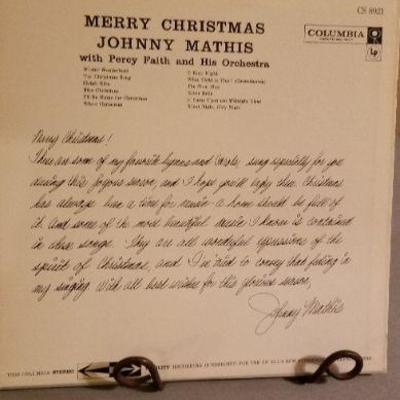 CS 8021
MERRY CHRISTMAS
COLUMBIA
JOHNNY MATHIS
with Percy Faith and His Orchestra
Winter Wonderland
The Christmas Song
Sleigh Ride
Blue Christmas
I'll Be Home for Christmas
White Christmas
O Holy Night
What Child Is This? (Greensleeves)
The First Noel
Silver Bells
It Came Upon the Midnight Clear
Silent Night, Holy Night
Merry Christmas!
These are some of my favorite hymns and carols, sung especially for you
during this joyous season, and I hope you'll enjoy them. Christmas
has always been a time for music - a home should be full of
it. And some of the most beautiful music I know is contained
in these songs. They are all wonderful expressions of the
spirit of Christmas, and I've tried to convey that feeling in
my singing. With all best wishes for this glorious season,
Johnny Mathis
STEREO